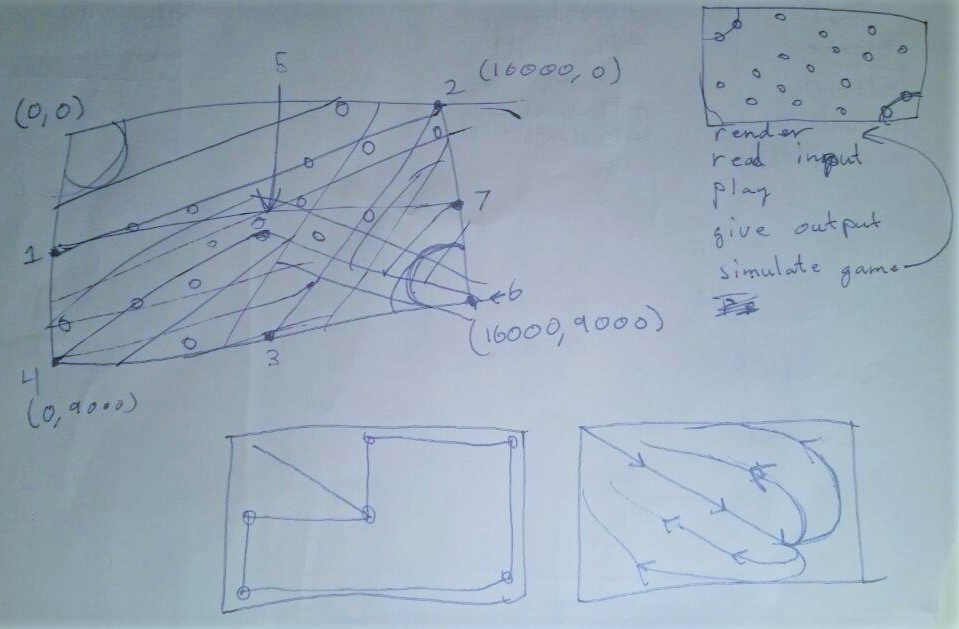 5
2 (16000, 0)
(0,0)
1
7
6
(16000, 9000)
3
4
(0, 9000)
render
read input
play
give output
simulate game